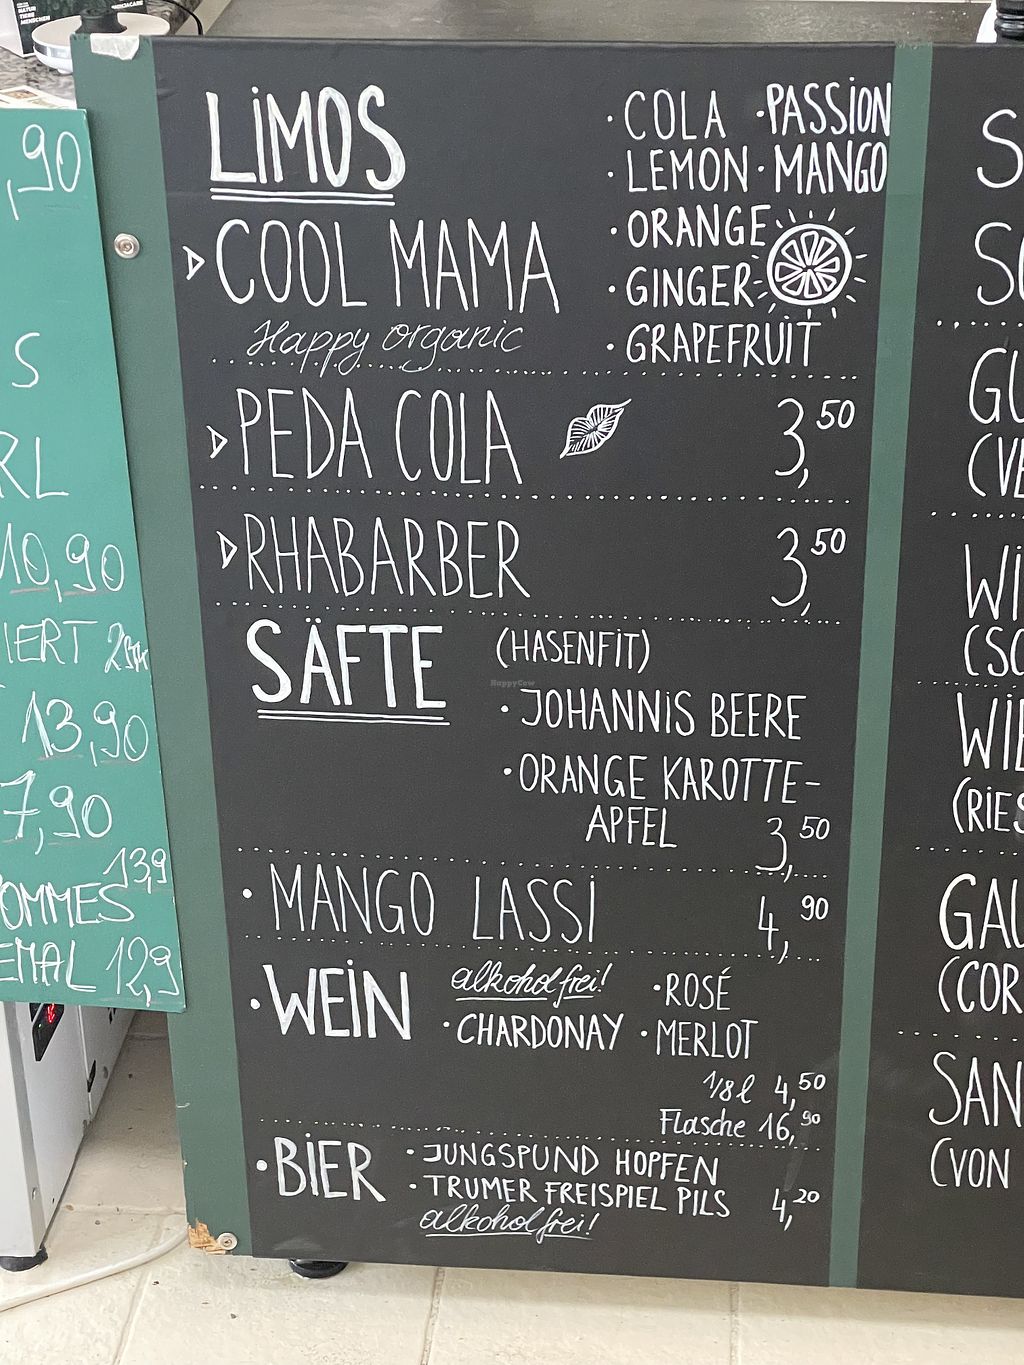 NATUR
TIERE
MENSCHEN
,90
S
RL
10,90
IERT
13,90
7,90
13,9
OMMES
EMAL 12,9
LiMOS
· COLA · PASSION
· LEMON · MANGO
· ORANGE
· GINGER
· GRAPEFRUIT
▷ COOL MAMA
Happy organic
▷ PEDA COLA 3,50
▷ RHABARBER 3,50
SÄFTE (HASENFIT)
· JOHANNIS BEERE
· ORANGE KAROTTE-
APFEL 3,50
· MANGO LASSI 4,90
· WEIN alkoholfrei! · ROSÉ
· CHARDONAY · MERLOT
1/8 l 4,50
Flasche 16,90
· BIER · JUNGSPUND HOPFEN
· TRUMER FREISPIEL PILS 4,20
alkoholfrei!
HappyCow
S
GU
(VE
Wi
(SC
WIE
(RiES
GAU
(COR
SAN
(VON